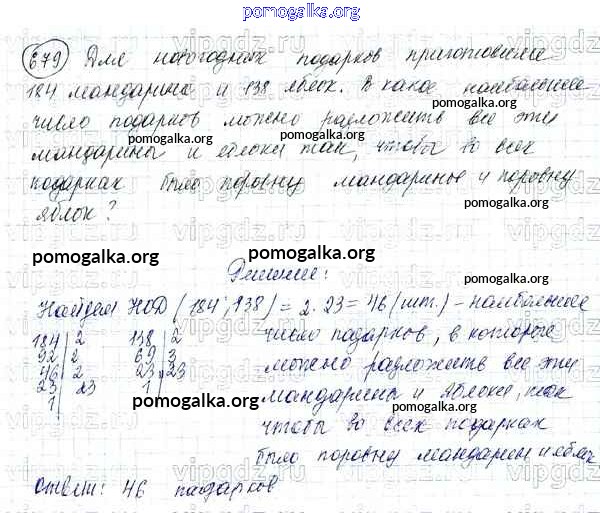 pomogalka.org
679) Для новогодних подарков приготовили
184 мандарина и 138 яблок. В какое наибольшее
pomogalka.org
число подарков можно разложить все эти
pomogalka.org
мандарины и яблоки так, чтобы во всех
подарках было поровну мандаринов и поровну
яблок?
pomogalka.org
pomogalka.org pomogalka.org
Решение:
Найдем НОД (184, 138) = 2 · 23 = 46 (шт.) – наибольшее
184 | 2 138 | 2 число подарков, в которое
92 | 2 69 | 3
46 | 2 23 | 23 можно разложить все эти
23 | 23 1 |
1 | мандарины и яблоки, так
pomogalka.org pomogalka.org
чтобы во всех подарках
pomogalka.org
было поровну мандарин и яблок
Ответ: 46 подарков